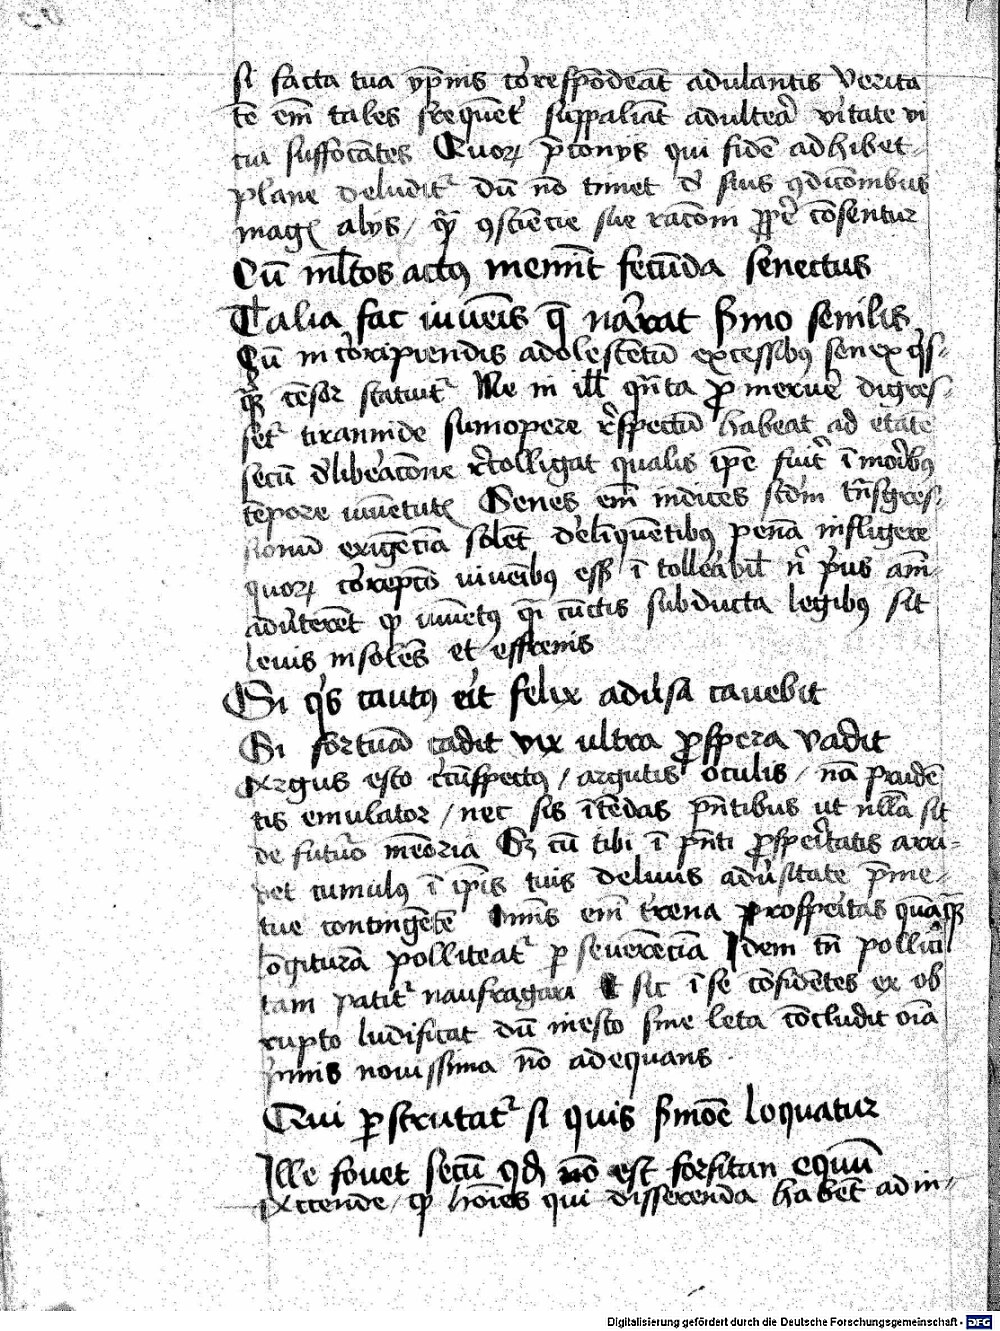 si facta tua yp̄nis cōrespōdeāt adulantis verita
tē em̄ tales freq̄uēt' suppaliāt adulteā vītate vi
cia suffocātes Quoꝝ p̄conijs qui fidē adhibet
plane deludit' dū nō timet suis ꝯdicōnibus
magꝭ alijs / qͣ ꝯsciēcie sue racōm cōsentur
Cū ml̄tos actꝰ memīt fecūda senectus
Talia fac iuuēis q̄ narrat s̄mo senilis
Cū in cōripiendis adolescētū excessibꝰ senex q's-
qꝫ cēsor statuit' Ne in ill' qn̄ta ꝓmeruer̄ digres-
set' tirannide sumopere respectū habeat ad etatē
secū d'libeacōne r'colligat qualis ip̄e fuit ī moribꝰ
tēpore iuuētutꝭ Senes em̄ iudices scd'm tn̄sgres-
sionū exigēcia solēt delīquētibꝰ penā infligere
quoꝝ correpcō iuuēibꝰ ess̄ ītolleabil' n̄ prius
aduerterēt qͣ iuuētꝰ q̄i cūctis subducta legibꝰ sit
leuis insolēs et effrenis
Si q's cautꝰ erit felix aduersa cauebit
Si fortunā cadit vix ultra ꝓspera vadit
Argus esto circūspectꝰ / argutis oculis / nā prudē
tis emulator / nec sis ītēdas pn̄tibus ut nulla sit
de futuro memoria Sꝫ cū tibi ī pn̄ti ꝓspeitatis arri-
det cumulꝰ ī ip̄is tuis deliciis aduersitate p̄me-
tue contingētē em̄ terrena prosperitas quāqͣꝫ
lōgiturā polliteat' perseuerēcia Idem tn̄ pollici
tam patit' naufragari Et sic ī se cōfidētes ex ob
rupto ludificat dū mesto fine leta cōcludit oīa
p'mis nouissima nō adequans
Qui ꝑscrutat' si quis s̄mōe loquatur
Ille fouet secū qd̄ nō est forsitan equū
Attende / qͣ hōies qui differenda habēt ad in-
Digitalisierung gefördert durch die Deutsche Forschungsgemeinschaft - DFG